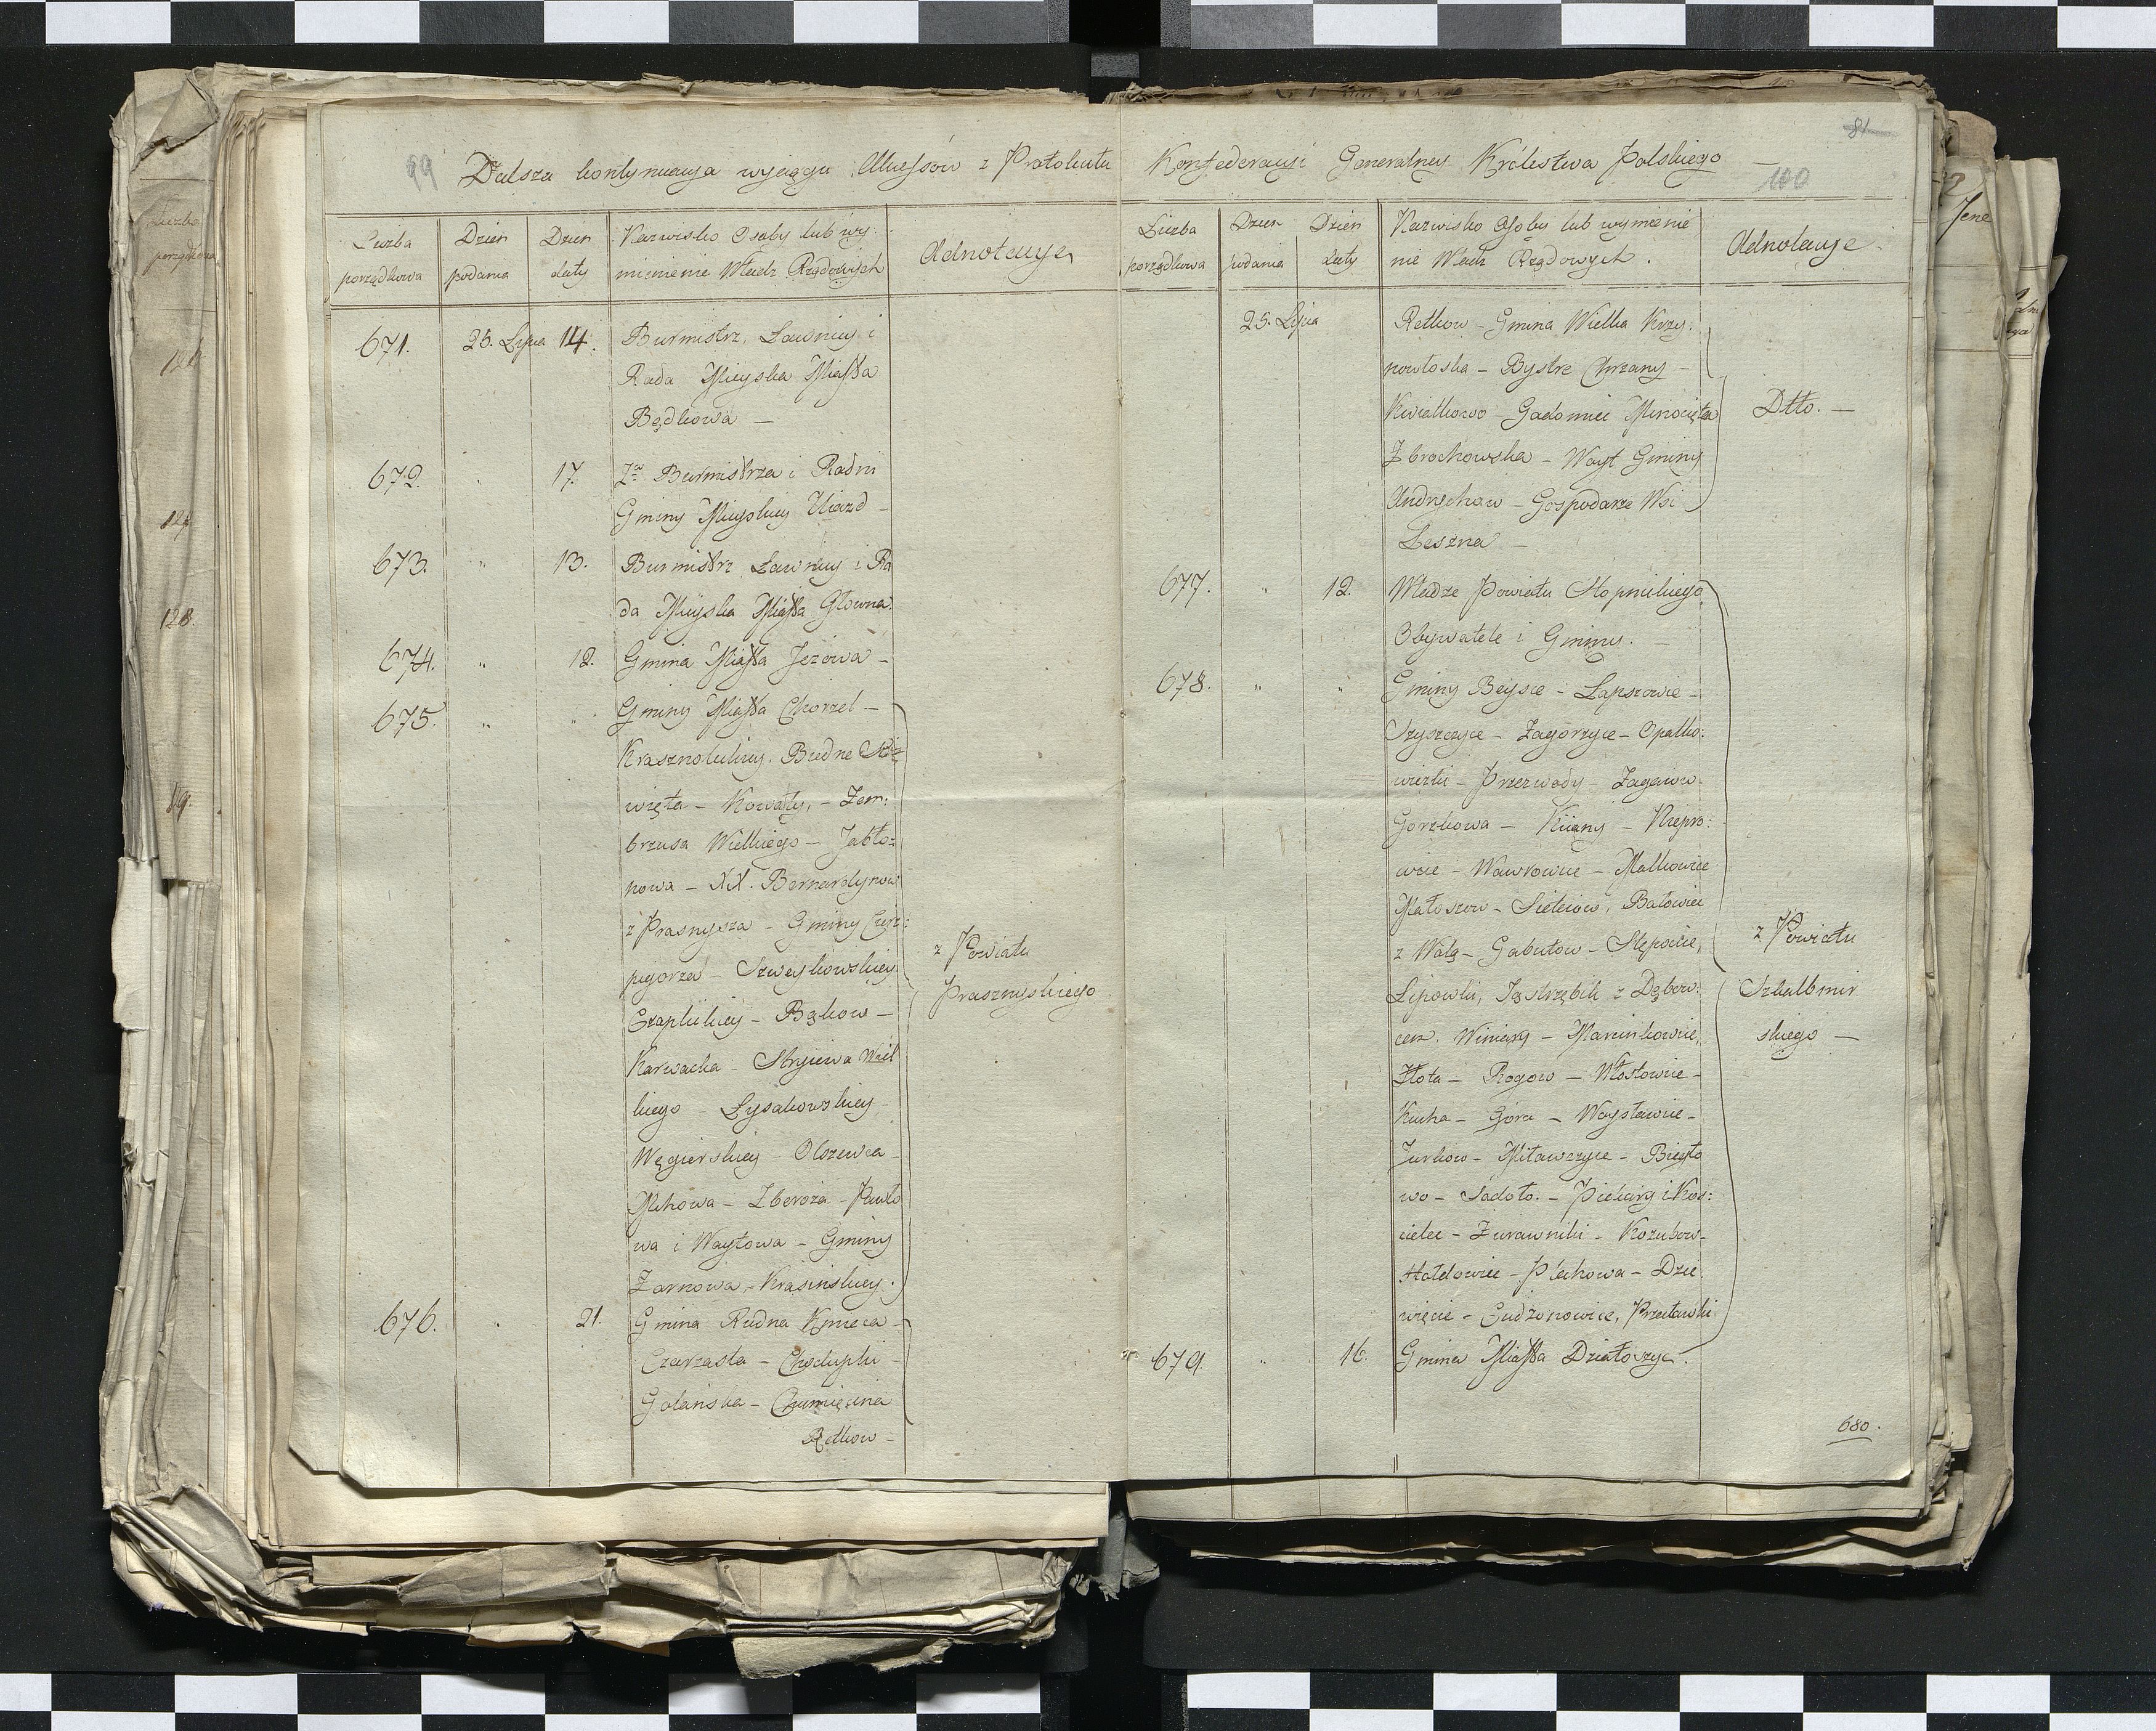 99 Dalsza kontynuacya wyciągu Akcessów z Protokułu Konfederacyi Generalney Królestwa Polskiego
81
100
Liczba porządkowa
Dzień podania
Dzień daty
Nazwisko Osoby lub wy-
mienienie Władz Rządowych
Adnotacye
671. 25. Lipca 14. Burmistrz, Ławnicy i
Rada Mieyska Miasta
Będkowa —
672. " 17. Za Burmistrza i Radni
Gminy Mieyskiey Uiazd —
673. " 13. Burmistrz Ławnicy i Ra
da Mieyska Miasta Głowna
674. " 12. Gmina Miasta Jeżowa —
675. " " Gminy Miasta Chorzel —
Krasznolickiey. Budne
więta — Kowały, — Zem:
brzusa Wielkiego — Jabło=
nowa — XX. Bernardynow
z Prasnysza — Gminy
pigorza — Szweykowskiey
Czaplickiey — Bąkow —
Karwacka — Stryiewa Wiel
kiego — Łysakowskiey —
Węgierskiey — Olszewca —
Mchowa — Zberoża — Pawło
wa i Waytowa — Gminy
Żarnowa, — Krasinskiey.
z Powiatu
Prasznyskiego
676. " 21. Gmina Rudna Kmieca —
Czarzasta — Chodupki —
Golańska — Chumięcina
Retkow —
Liczba porządkowa
Dzień podania
Dzień daty
Nazwisko Osoby lub wymienie
nie Władz Rządowych.
Adnotacye.
25. Lipca Retkow — Gmina Wielka Krzy:
nowłoska — Bystre Chrzany —
Kwiatkowo — Gadomiec Minocięta
Zbrochowska — Woyt Gminy
Andrychow — Gospodarze Wsi
Leszna —
Dtto. —
677. " 12. Władze Powiatu Stopnickiego
Obywatele i Gminy. —
678. " " Gminy Beysce — Łapszowie —
Czyszczyce — Zagorzyce — Opatko:
wiczki — Przezwody — Zagaiow
Gorzkowa — Kiiany — Niepro:
wice — Wawrowice — Malkowice
Małoszow — Sielcow, Balowiec
z Wolą — Gabułtow — Stępocice,
Lipowki, Jastrzębik z Dębow:
cem. Winiary — Marcinkowice,
Złota — Rogow — Włostowice —
Kucha — Góra — Woysławice —
Jurkow — Miławczyce — Biegło
wo — Sadoło. — Piekary i Koś:
cielec — Żurawniki — Kozubow —
Hołdowiec — Plechowa — Dzie
więcie — Cudzynowice, Przecławki
z Powiatu
Szkalbmir
skiego —
679. " 16. Gmina Miasta Działoszyc.
680.